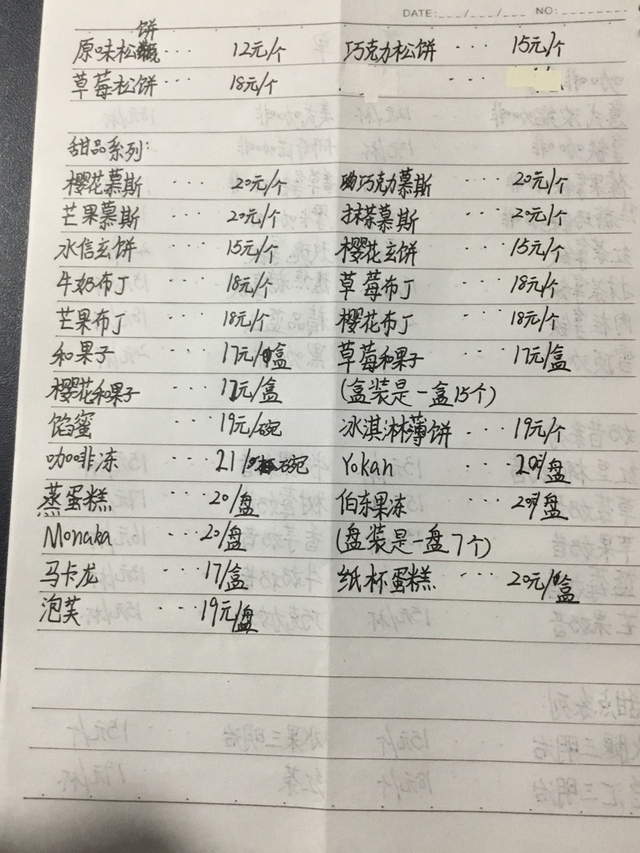 DATE: NO:
原味松饼 ··· 12元/个 巧克力松饼 ··· 15元/个
草莓松饼 18元/个
甜品系列:
樱花慕斯 ··· 20元/个 巧克力慕斯 ··· 20元/个
芒果慕斯 ··· 20元/个 抹茶慕斯 ··· 20元/个
水信玄饼 ··· 15元/个 樱花玄饼 ··· 15元/个
牛奶布丁 ··· 18元/个 草莓布丁 ··· 18元/个
芒果布丁 ··· 18元/个 樱花布丁 ··· 18元/个
和果子 ··· 17元/盒 草莓和果子 ··· 17元/盒
樱花和果子 ··· 17元/盒 (盒装是一盒15个)
馅蜜 ··· 19元/碗 冰淇淋薄饼 ··· 19元/个
咖啡冻 ··· 21/碗 Yokan ··· 20/盘
蒸蛋糕 ··· 20/盘 伯东果冻 ··· 20/盘
Monaka ··· 20/盘 (盘装是一盘7个)
马卡龙 ··· 17/盒 纸杯蛋糕 ··· 20元/盒
泡芙 ··· 19元/盘